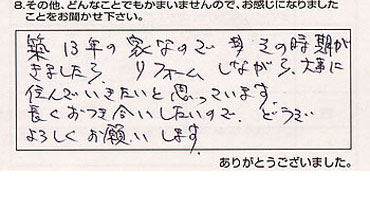 8.その他、どんなことでもかまいませんので、お感じになりました
ことをお聞かせ下さい。
築13年の家なので その時期が
きましたら、リフォームしながら、大事に
住んでいきたいと思っています。
長くおつき合いしたいので、どうぞ
よろしくお願いします。
ありがとうございました。